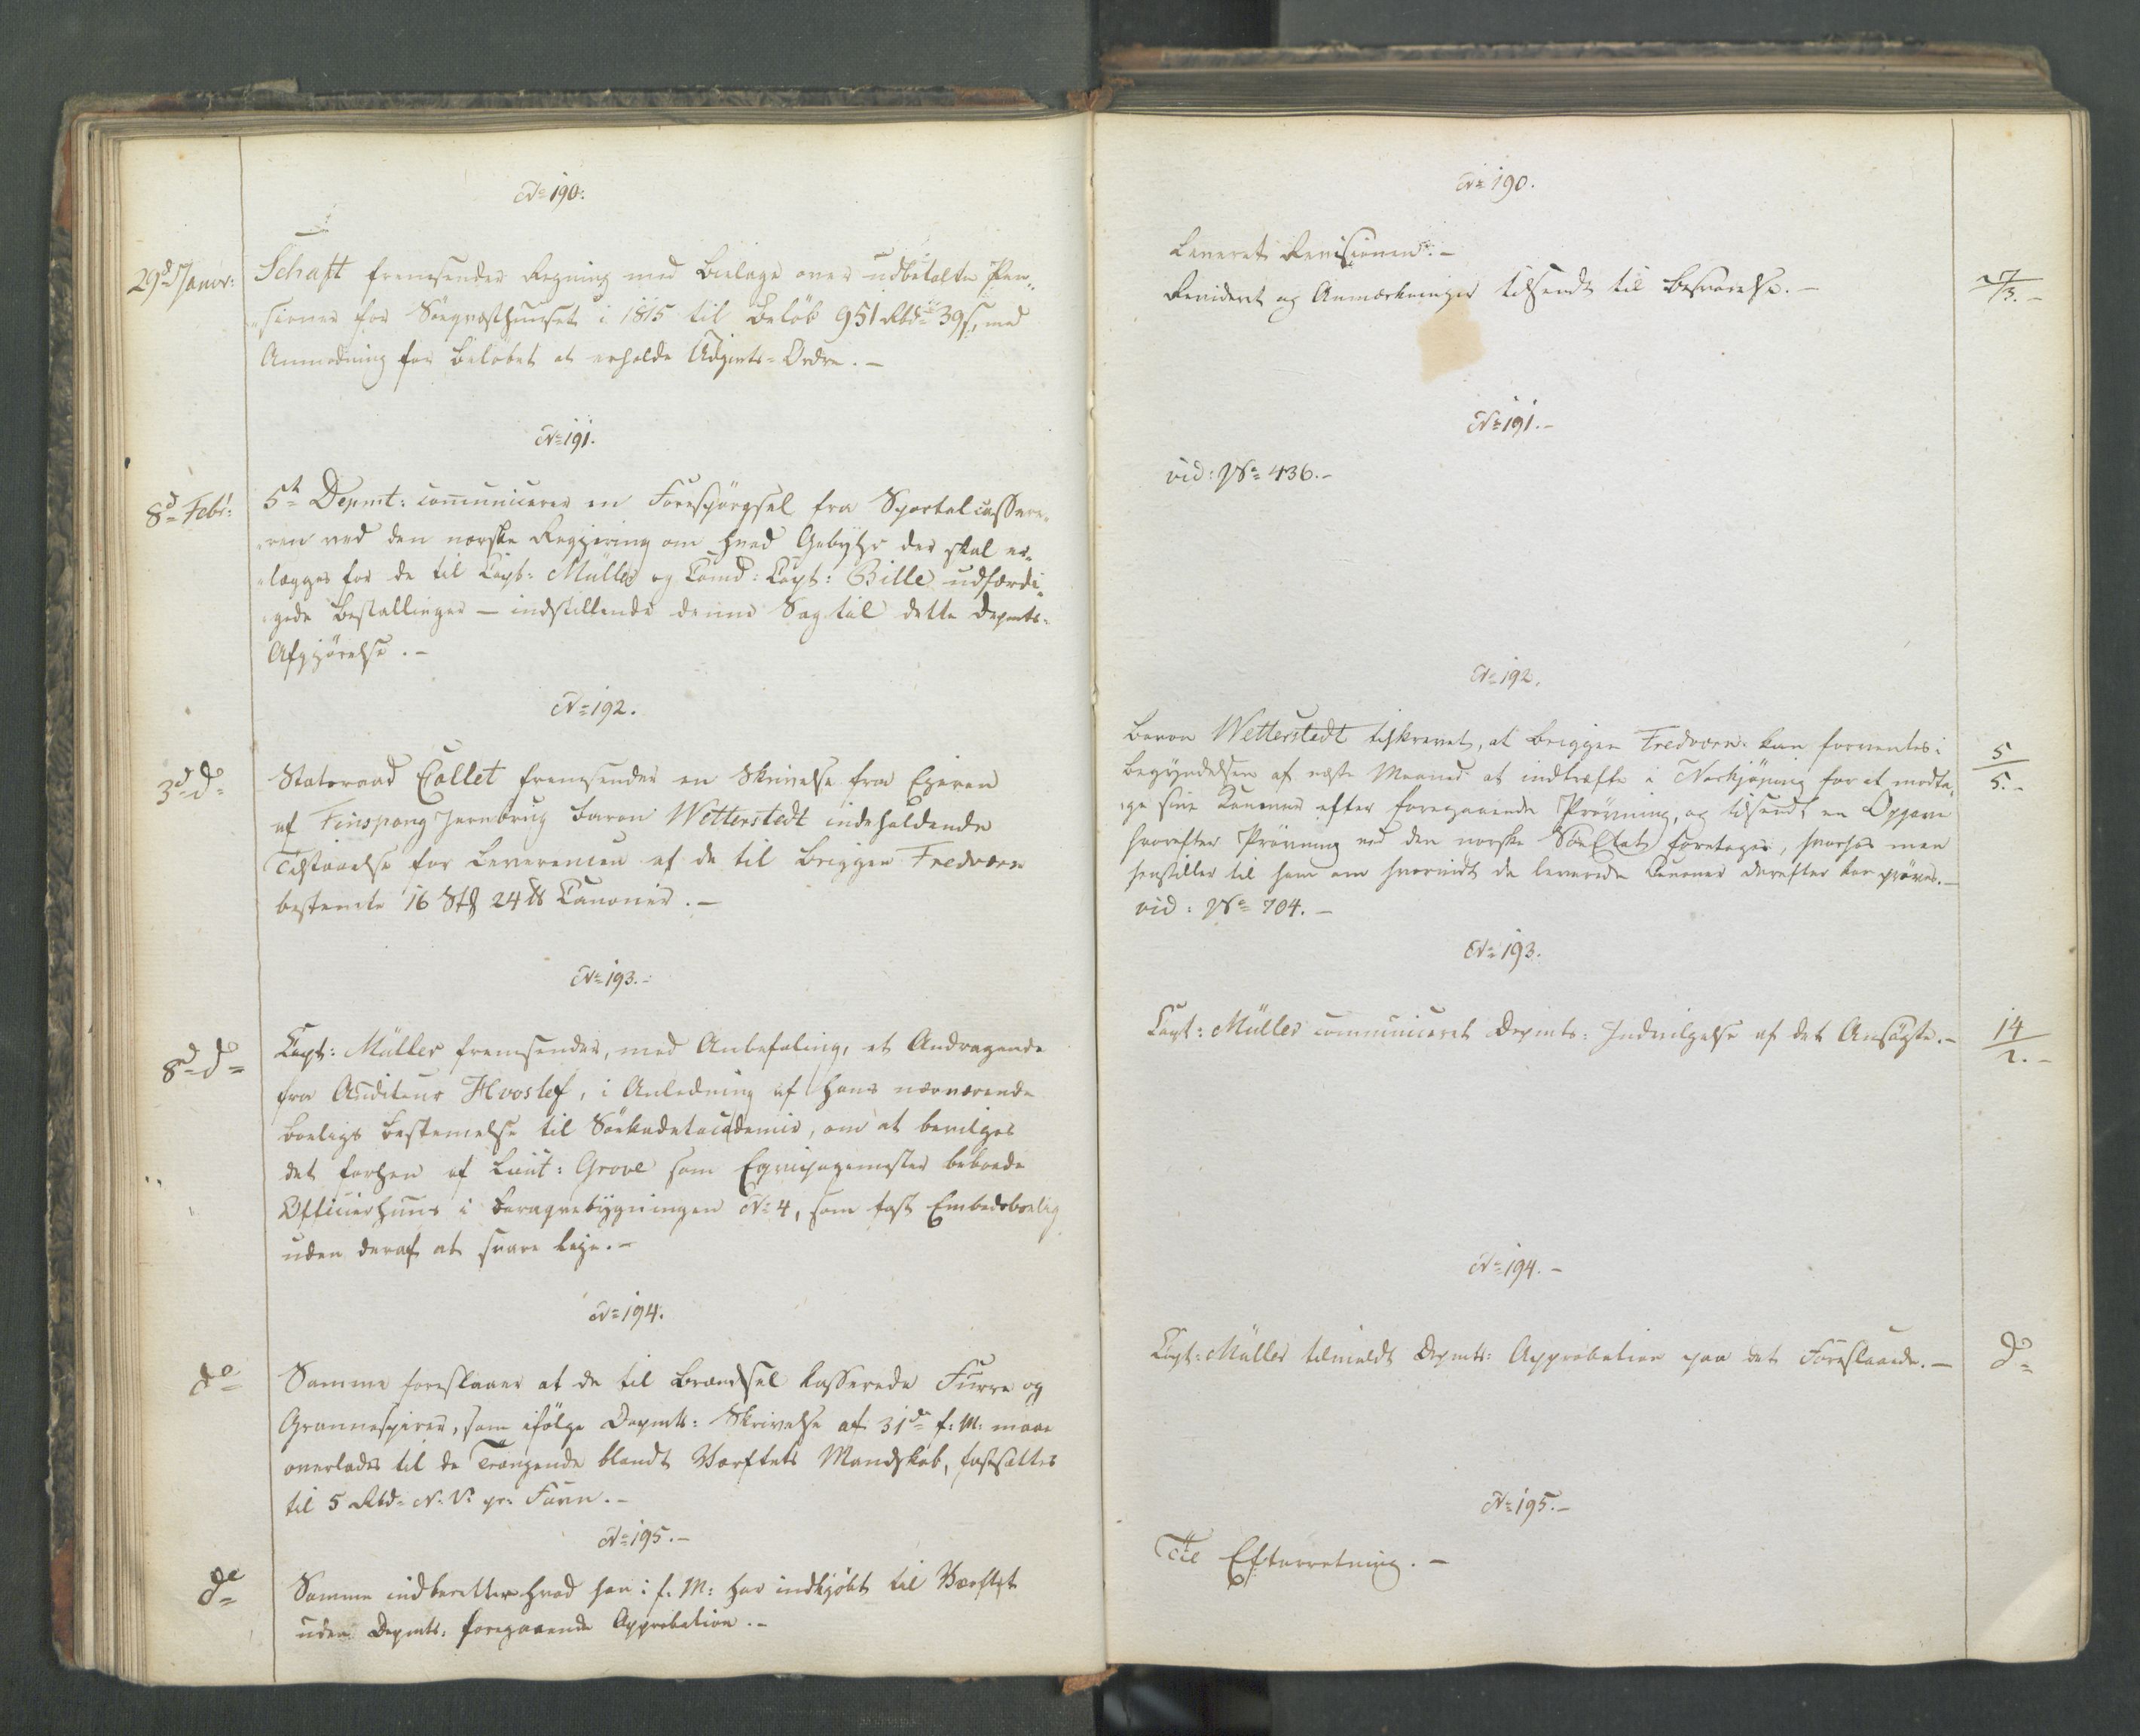 No 190.
29d Janvr: Schaft fremsender Regning med Bielage over udbetalte Pen-
sioner for Söeqvæsthuuset i 1815 til Beløb 951 Rbd. 39 s, med
Anmodning for Beløbet at erholde Udgivts-Ordre. -
No 191.
8d Febr: 5te Depmt: communicerer en Forespörgsel fra Sportelcassere-
ren ved den norske Regjering om hvad Gebyhr der skal er-
lægges for de til Capt: Müller og Comd: Capt: Bille udfærdi-
gede Bestallinger - indstillende denne Sag til dette Depmts:
Afgjörelse. -
No 192.
3d do Statsraad Collet fremsender en Skrivelse fra Ejeren
af Finspong Jernbrug Baron Wetterstedt indeholdende
Tilstaaelse for Leverencen af de til Briggen Fredværn
bestemte 16 Stk 24 ℔ Canoner. -
No 193. -
8d do Capt: Müller fremsender, med Anbefaling, et Andragende
fra Auditeur Hvoslef, i Anledning af hans nærværende
Boeligs Bestemelse til Söekadetacademie, om at bevilges
det forhen af Lieut: Grove som Eqvipagemester beboede
Officierhuus i Baraquebygningen No 4, som fast Embedsboelig
uden deraf at svare Leje. -
No 194.
do Samme foreslaaer at de til Brændsel kasserede Furre og
Grannespirer, som ifölge Depmts: Skrivelse af 31de f: M: maae
overlades til de Trængende blandt Værftets Mandskab, fastsættes
til 5 Rbd. N. V. pr. Favn. -
No 195. -
do Samme indberetter hvad han i f. M: har indkjöbt til Værftet
uden Depmts: foregaaende Approbation. -
No 190.
Leveret Revisionen. -
Revideret og Anmærkninger tilsendt til Besvarelse. - 7/3. -
No 191. -
vid: No 436. -
No 192.
Baron Wetterstedt tilskrevet, at Briggen Fredværn kan forventes i
Begyndelsen af næste Maaned at indtræffe i Norkjöping for at modta- 5/5. -
ge sine Kanoner efter foregaaende Prövning, og tilsendt en Opgave
hvorefter Prövning ved den norske SöeEtat foretages, hvorhos man
henstiller til ham om hvorvidt de leverede Canoner derefter bør pröves. -
vid: No 704. -
No 193.
Capt: Müller communiceret Depmts: Indvilgelse af det Ansögte. - 14/2. -
No 194. -
Capt: Müller tilmeldt Depmts: Approbation paa det Foreslaaede. - do
No 195. -
Til Efterretning. -